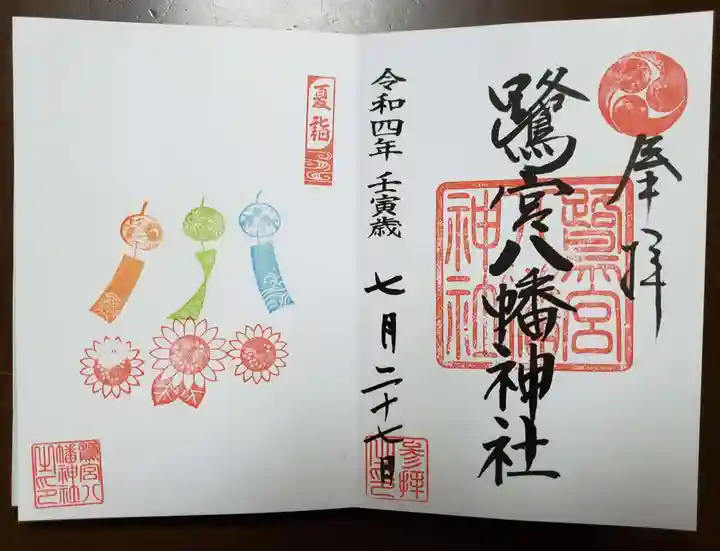 奉拝
鷺宮八幡神社
鷺宮八幡神社
令和四年 壬寅歳 七月二十七日
参拝之印
夏詣
鷺宮八幡神社之印